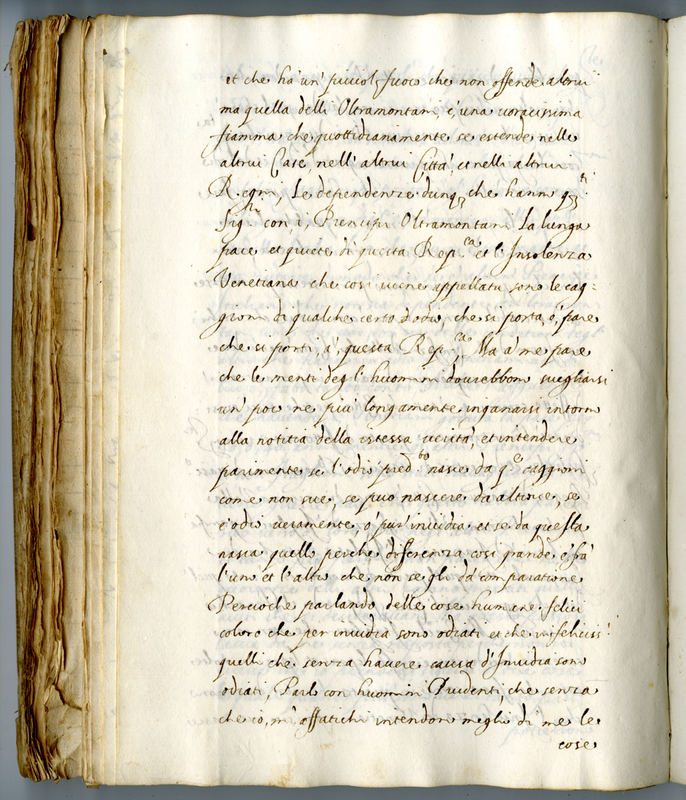 et che ha un' piccol fuoco che non offende altrui
ma quella delli Oltramontani, è una voracissima
fiamma che quottidianamente se estende nelle
altrui Case, nell' altrui Città, et nelli altrui
Regni, Le dependenze dunq; che hanno q.sti
Sig.ri con i Prencipi Oltramontani La lunga
pace et quiete di questa Rep.ca et l'Insolenza
Venetiana che così viene appellata sono le cag=
gioni di qualche certo odio, che si porta, ò, pare
che si porti, à, questa Rep.ca, Ma à me pare
che le menti degl' huomini dovrebbono svegliarsi
un' poco ne più longamente inganarsi intorno
alla notitia della istessa verità, et intendere
parimente se l'odio pred.to nasce da q.e caggioni
come non sue, se può nascere da altrove, se
è odio veramente, ò pur' invidia et se da questa
nasca quello perche differenza così grande è frà
l'uno et l'altro che non se gli dà comparatione
Percioche parlando delle cose humane felici
coloro che per invidia sono odiati et che infeliciss.i
quelli che senza havere causa d'Invidia sono
odiati, Parlo con huomini Prudenti, che senza
che io, m'affatichi intendono meglio di me le
cose